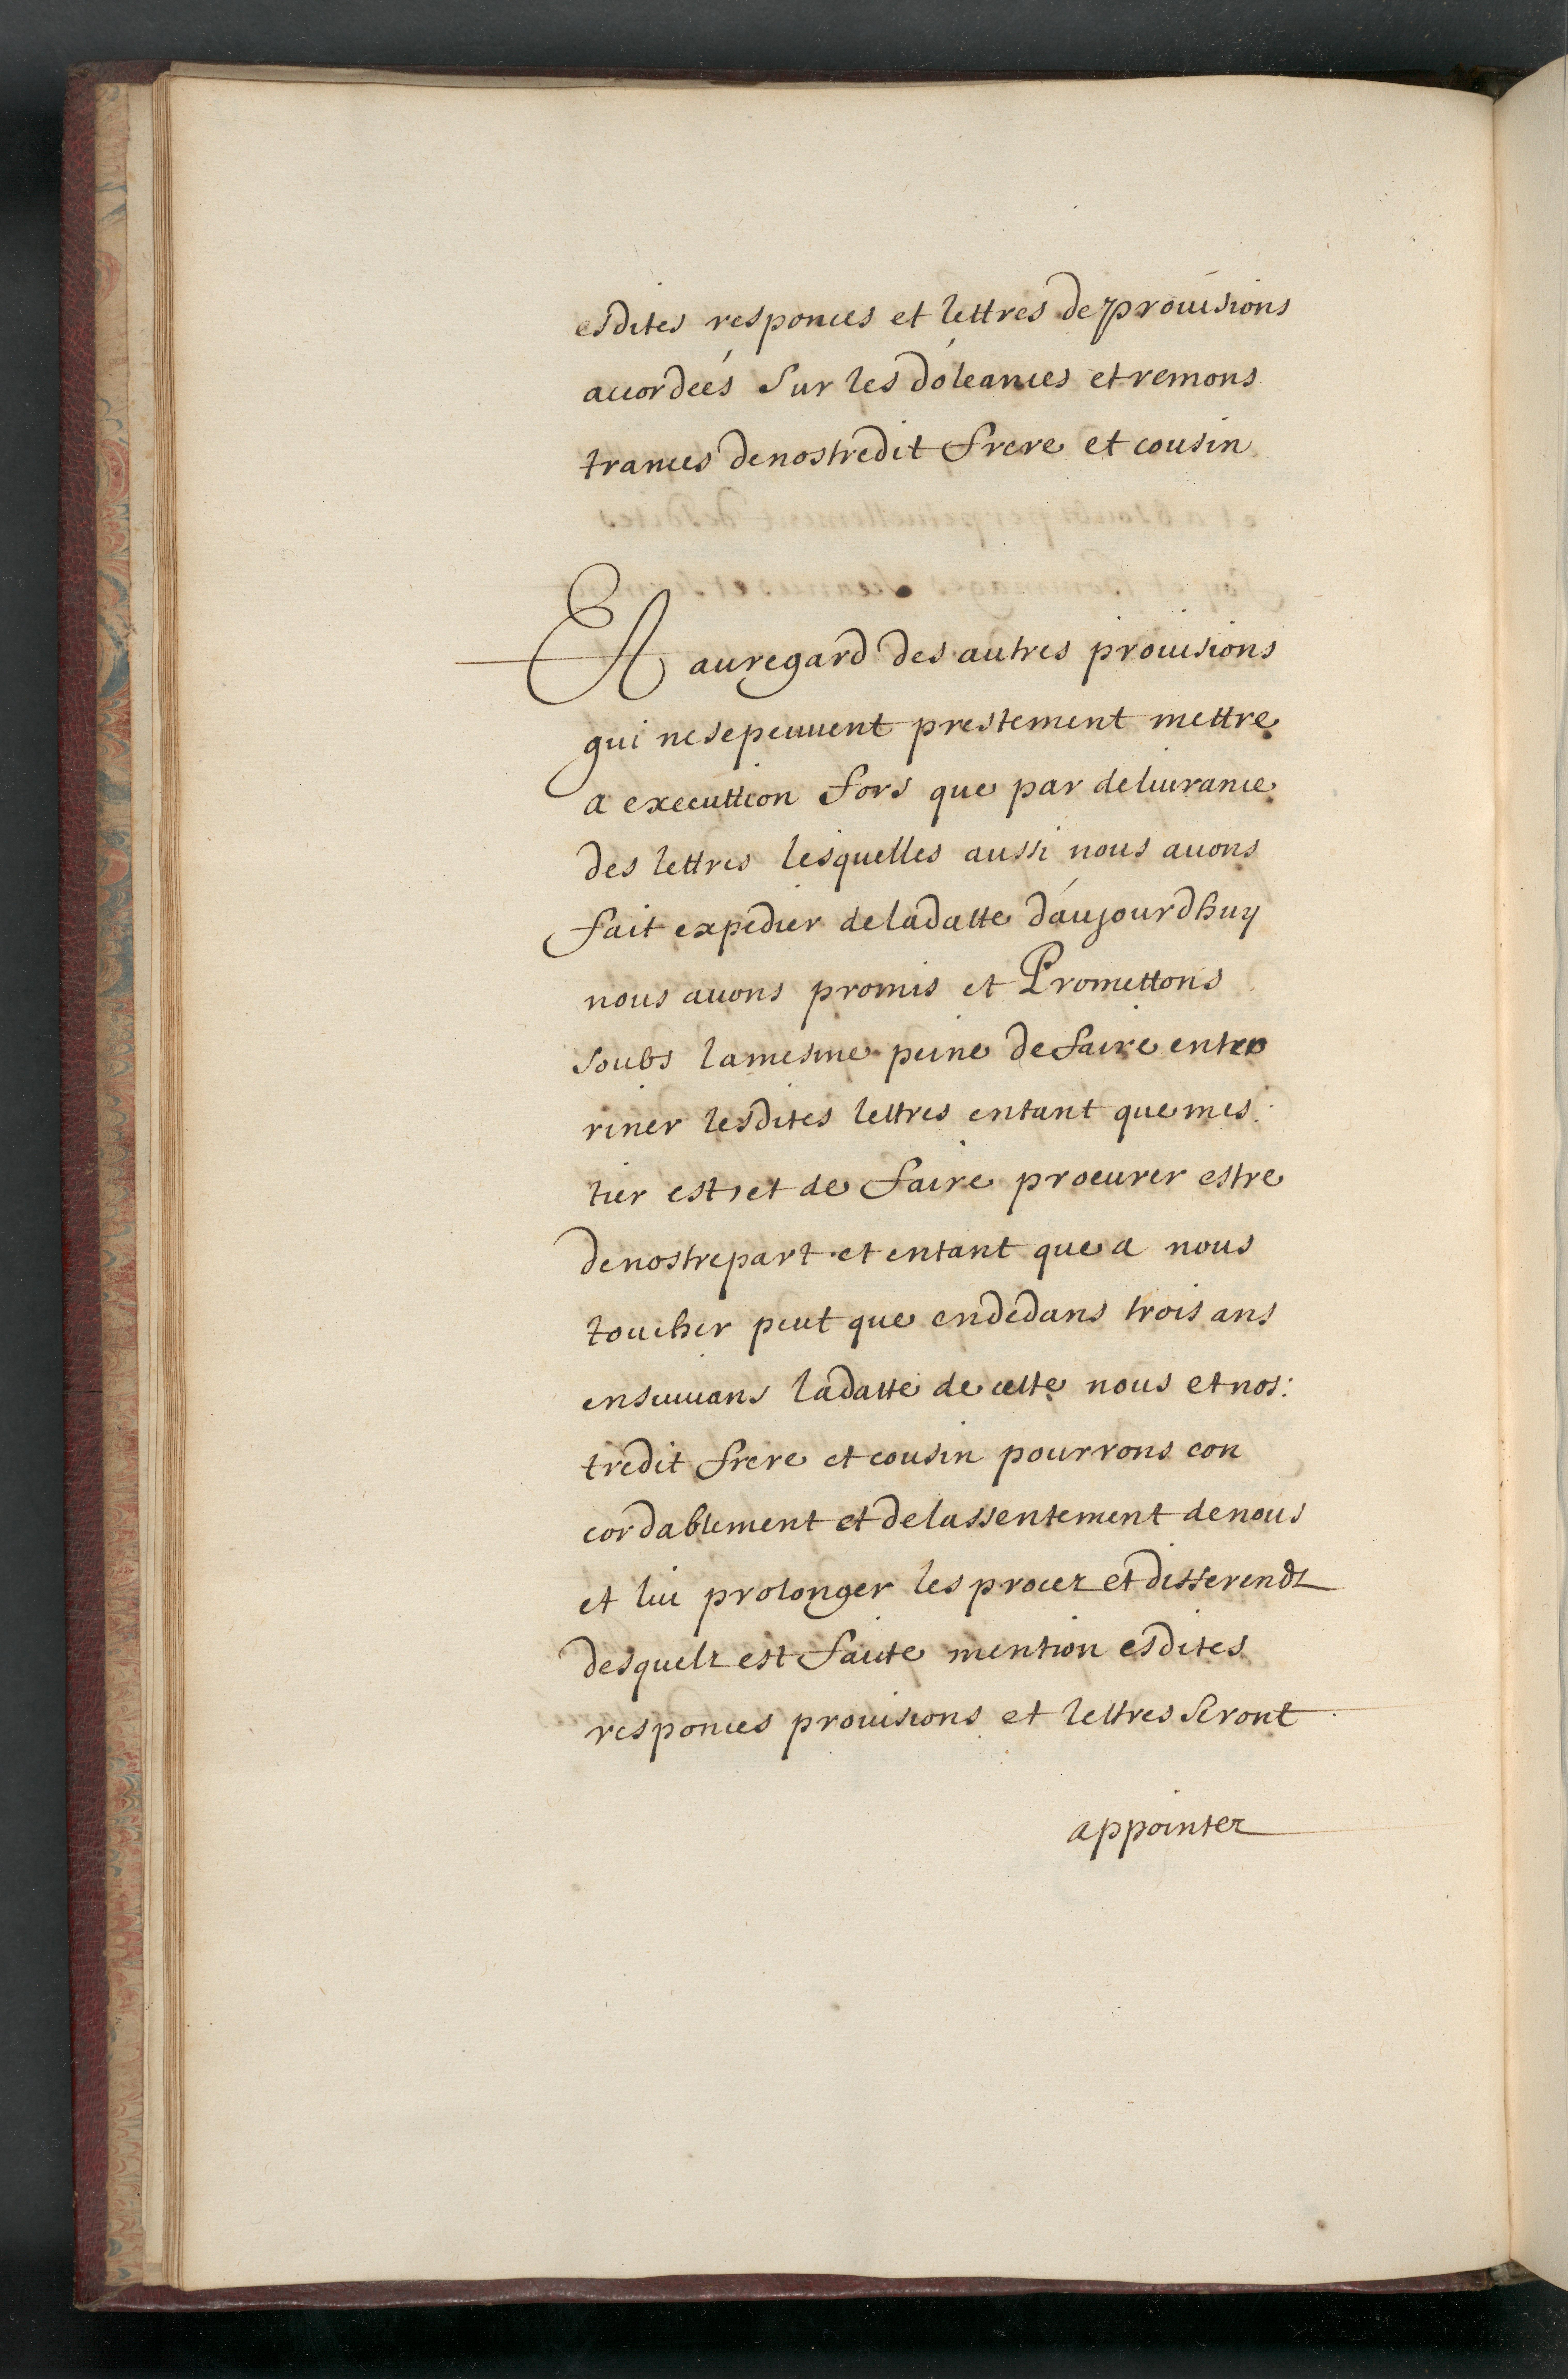 esdites responces et lettres de provisions
accordeés sur les doleances et remons
trances de nostredit frere et cousin
Et au regard des autres provisions
qui ne se peuuent prestement mettre
a executtion fors que par deliurance
des lettres lesquelles aussi nous auons
fait expedier de la datte d'aujourdhuy
nous auons promis et Promettons
soubs la mesme peine de faire ente
riner lesdites lettres entant que mes
tier est, et de faire procurer estre
de nostre part et entant que a nous
toucher peut que en dedans trois ans
ensuiuans la datte de cette nous et nos:
tredit frere et cousin pourrons con
cordablement et de lassentement de nous
et lui prolonger les procez et differendz
desquelz est faite mention esdites
responces prouisions et lettres seront
appointez